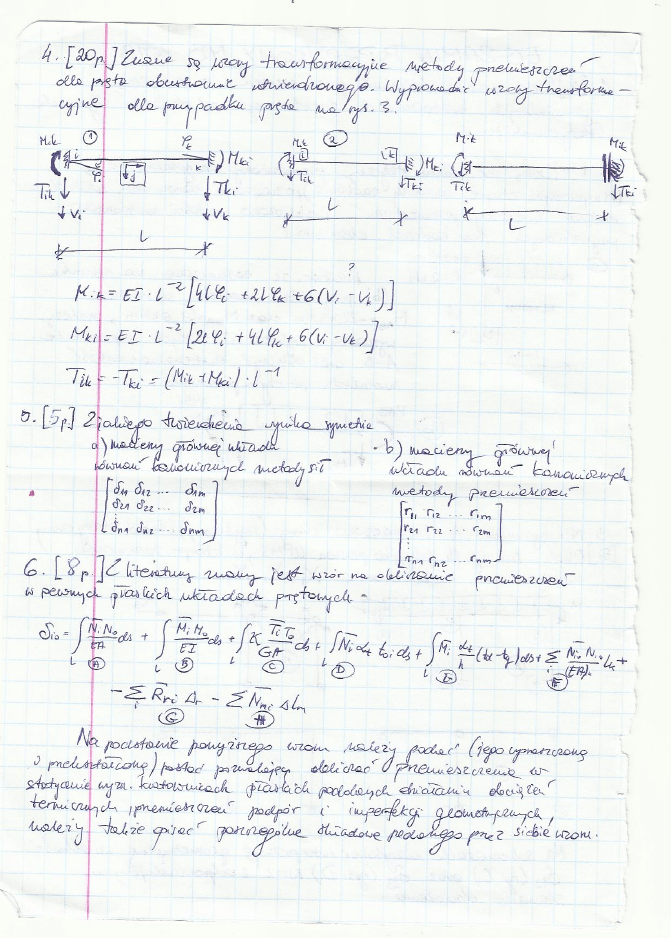 4. [20p.] Znane są wzory transformacyjne metody przemieszczeń
dla pręta obustronnie utwierdzonego. Wyprowadzić wzory transforma-
cyjne dla przypadku pręta na rys. 3.
① φk ②
Mik i k Mki
φi j
Tik Tki
Vi Vk
L
Mik i k Mki
Tik Tki
L
Mik Mki
Tik Tki
L
?
Mik = EI · l⁻² [4lφi + 2lφk + 6(Vi - Vk)]
Mki = EI · l⁻² [2lφi + 4lφk + 6(Vi - Vk)]
Tik = -Tki = (Mik + Mki) · l⁻¹
5. [5p.] Z jakiego twierdzenia wynika symetria
a) macierzy głównej układu
równań kanonicznych metody sił
[δ11 δ12 ... δ1m
δ21 δ22 ... δ2m
⋮
δn1 δn2 ... δnm]
b) macierzy głównej
układu równań kanonicznych
metody przemieszczeń
[r11 r12 ... r1m
r21 r22 ... r2m
⋮
rn1 rn2 ... rnm]
6. [8p.] Z literatury znany jest wzór na obliczanie przemieszczeń
w pewnych płaskich układach prętowych -
δio = ∫ N̄i No/EA ds + ∫ M̄i Mo/EI ds + ∫ K T̄i To/GA ds + ∫ N̄i αt to ds + ∫ M̄i αt/h (td - tg) ds + Σ N̄io Nio/(EA) L +
L Ⓐ L Ⓑ L Ⓒ L Ⓓ L Ⓔ i Ⓕ
- Σ R̄ri Δr - Σ N̄mi ΔLm
Ⓖ Ⓗ
Na podstawie powyższego wzoru należy podać (jego uproszczoną
i przekształconą) postać pozwalającą obliczać przemieszczenia w
statycznie wyzn. kratownicach płaskich poddanych działaniu obciążeń
termicznych, przemieszczeń podpór i imperfekcji geometrycznych,
należy także opisać poszczególne składowe podanego przez siebie wzoru.